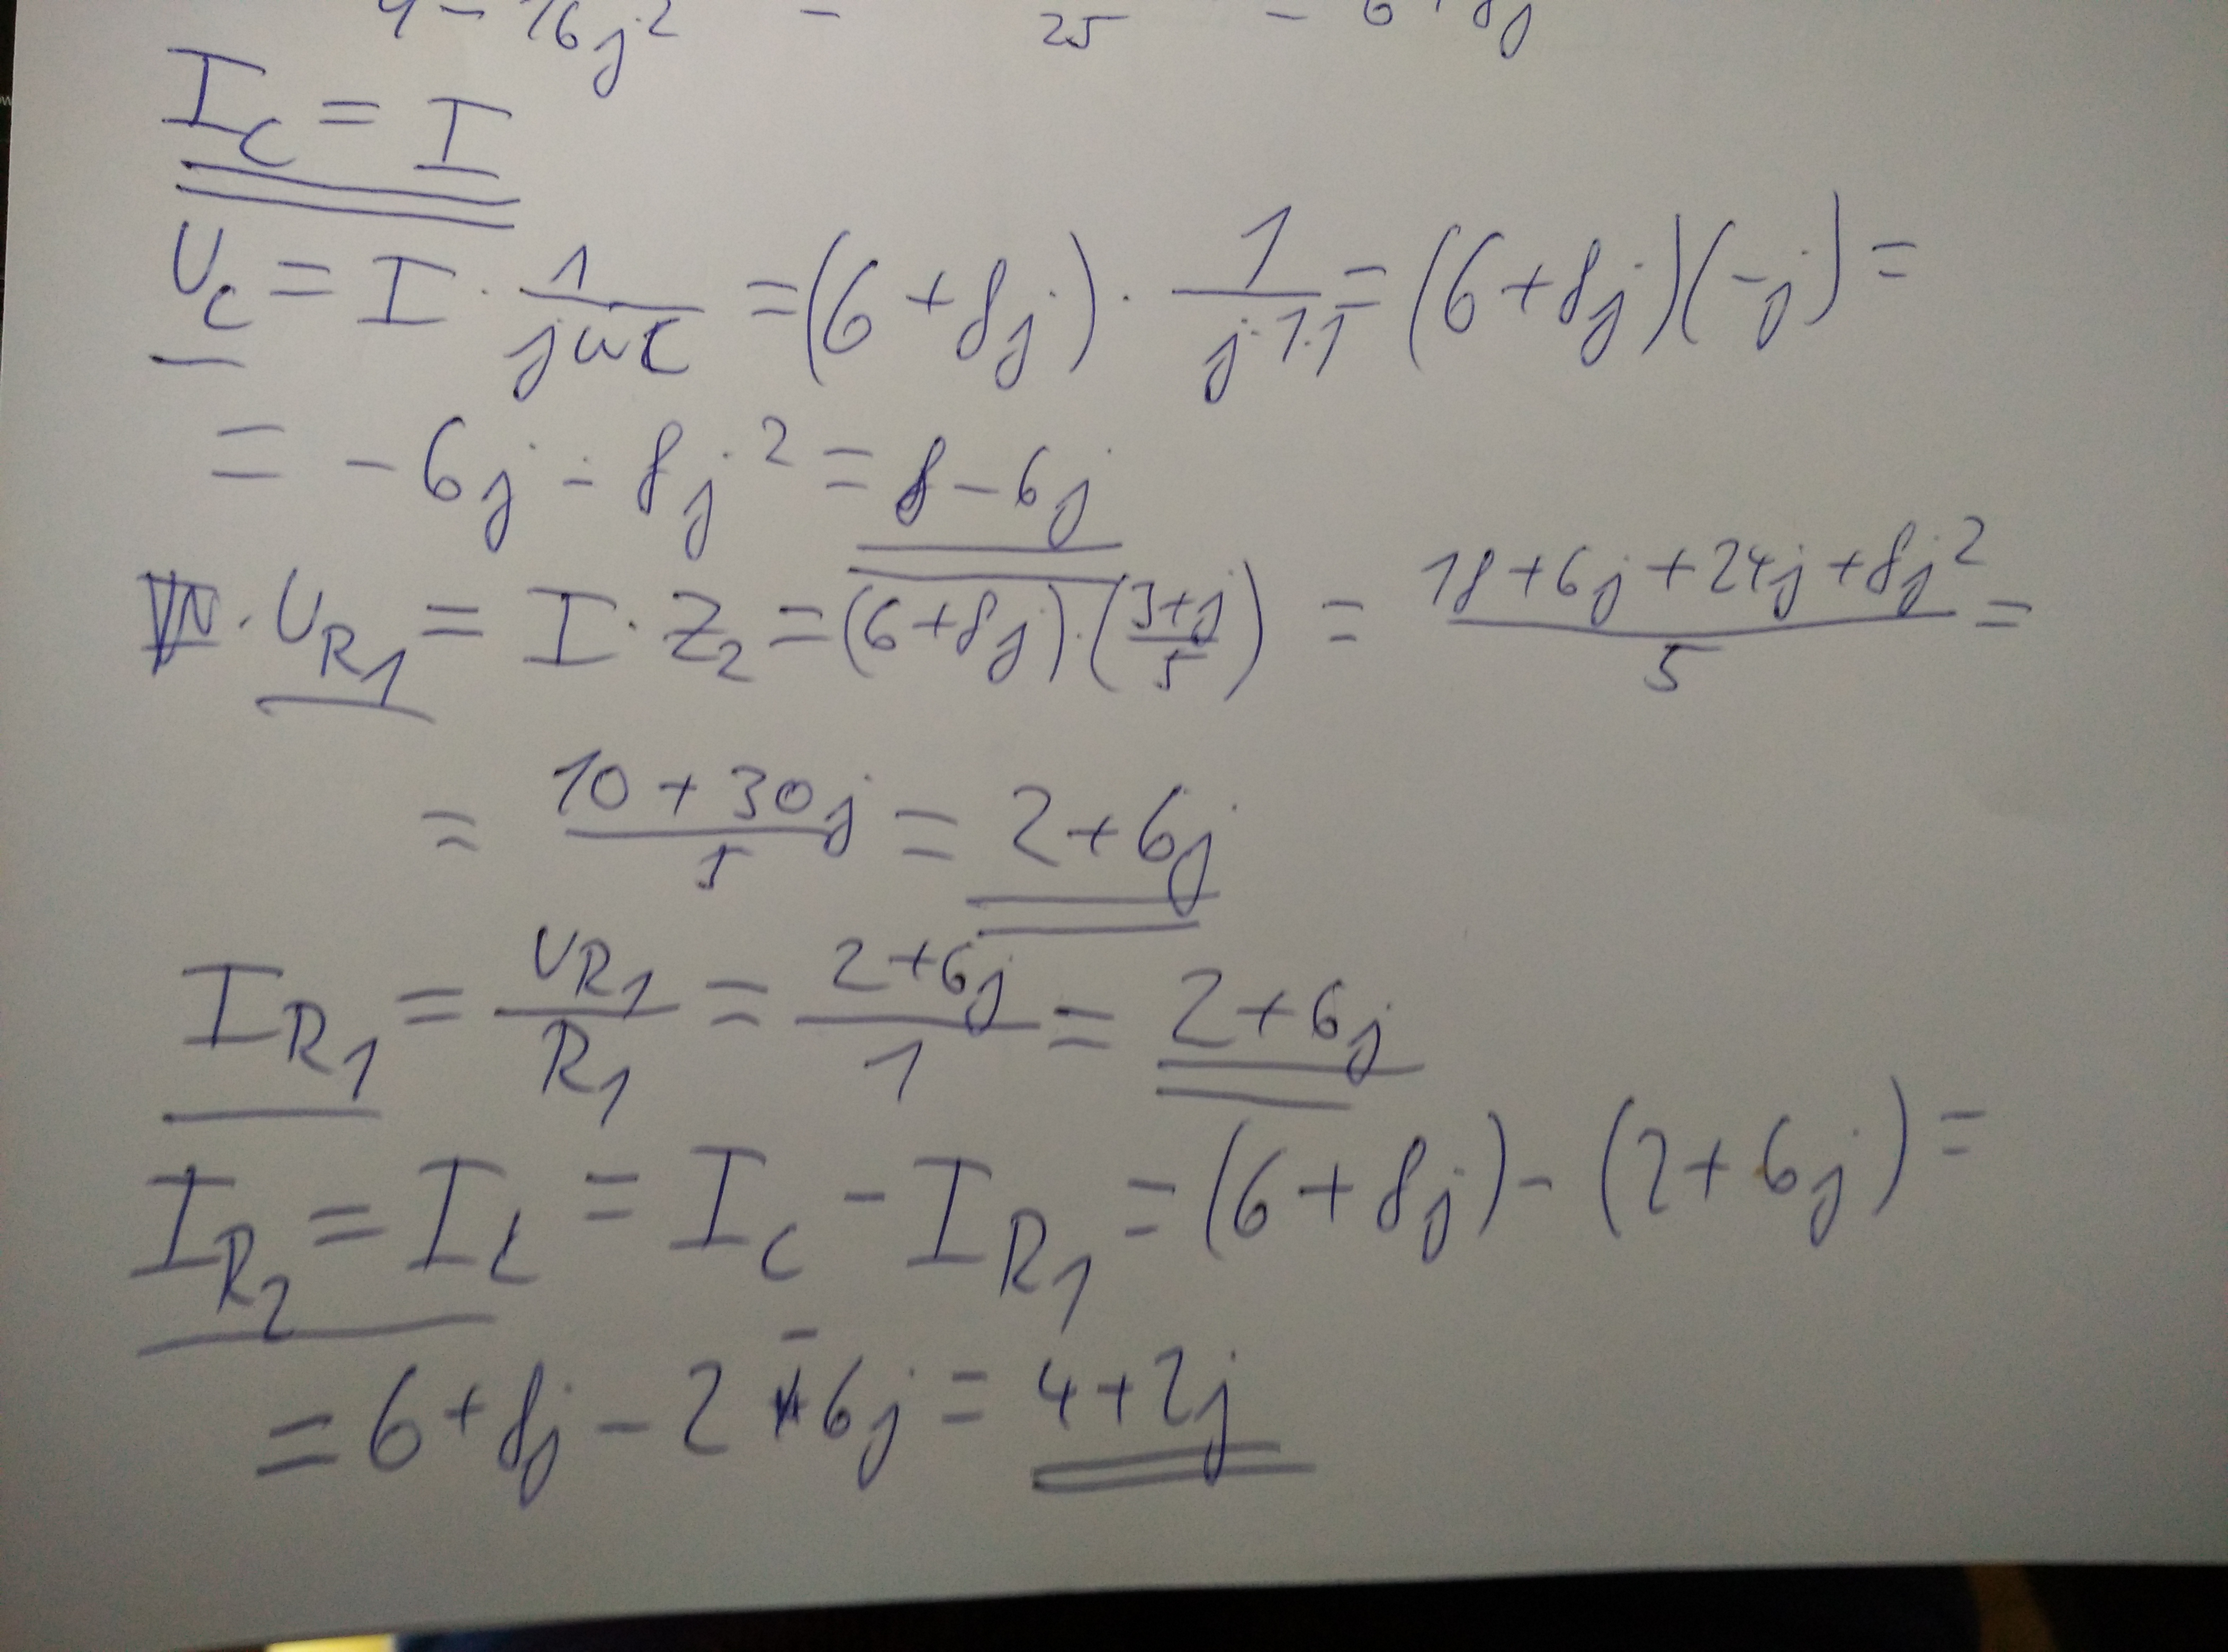 9 - 16j² = 25 = 6 + 8j
I_C = I
U_C = I · 1/(jωC) = (6 + 8j) · 1/(j·1·1) = (6 + 8j)(-j) =
= -6j - 8j² = 8 - 6j
U_R1 = I · Z_2 = (6 + 8j) · ((3+j)/5) = (18 + 6j + 24j + 8j²)/5 =
= (10 + 30j)/5 = 2 + 6j
I_R1 = U_R1/R_1 = (2 + 6j)/1 = 2 + 6j
I_R2 = I_L = I_C - I_R1 = (6 + 8j) - (2 + 6j) =
= 6 + 8j - 2 - 6j = 4 + 2j